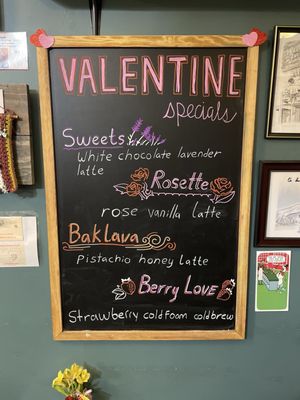 VALENTINE
specials
Sweets
White chocolate lavender
latte
Rosette
rose vanilla latte
Baklava
Pistachio honey latte
Berry Love
Strawberry coldfoam coldbrew